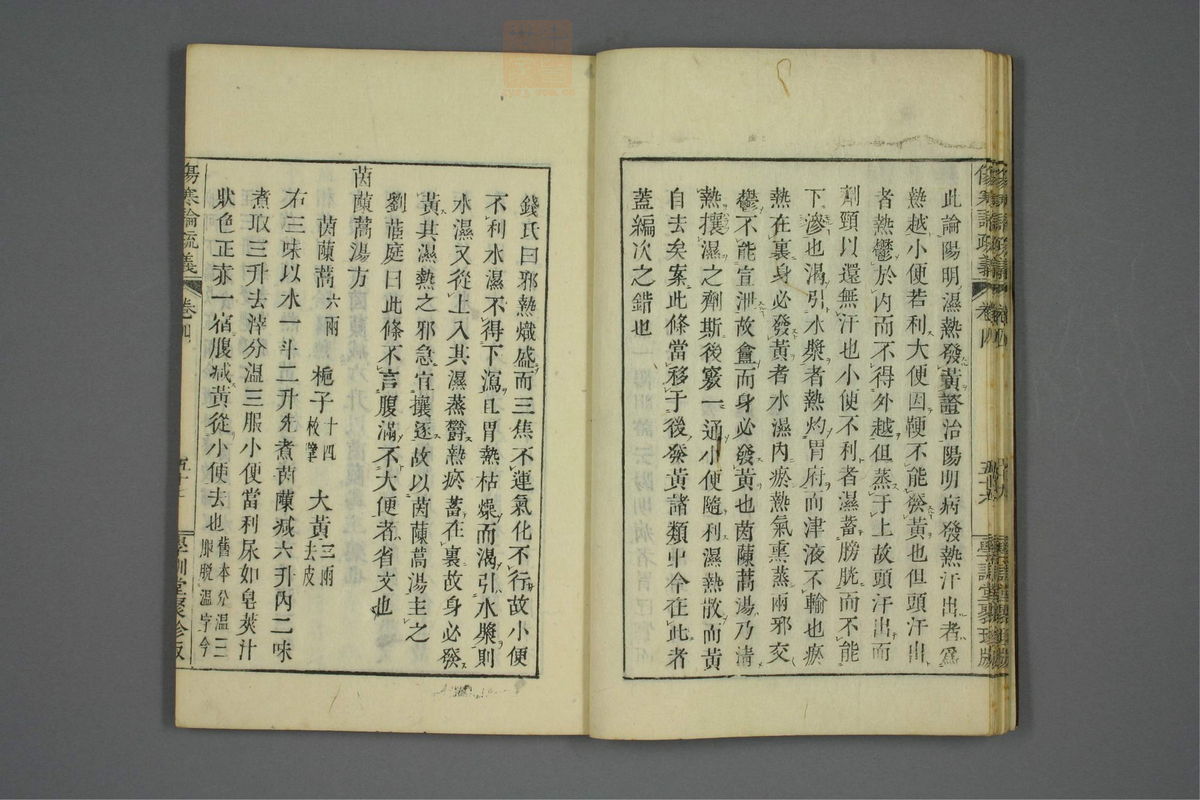 此論陽明濕熱發黃證治陽明病發熱汗出者爲
熱越小便若利大便因鞕不能發黃也但頭汗出
者熱鬱於內而不得外越但蒸于上故頭汗出而
劑頸以還無汗也小便不利者濕蓄膀胱而不能
下滲也渴引水漿者熱灼胃府而津液不輸也瘀
熱在裏身必發黃者水濕內瘀熱氣熏蒸兩邪交
鬱不能宣泄故盦而身必發黃也茵蔯蒿湯乃淸
熱攘濕之劑斯後竅一通小便隨利濕熱散而黃
自去矣案此條當移于後發黃諸類中今在此者
蓋編次之錯也
傷寒論疏義
卷四
學訓堂聚珍版
錢氏曰邪熱熾盛而三焦不運氣化不行故小便
不利水濕不得下瀉且胃熱枯燥而渴引水漿則
水濕又從上入其濕蒸鬱熱瘀蓄在裏故身必發
黃其濕熱之邪急宜攘逐故以茵蔯蒿湯主之
劉蓓庭曰此條不言腹滿不大便者省文也
茵蔯蒿湯方
茵蔯蒿六兩 梔子十四枚擘 大黃三兩去皮
右三味以水一斗二升先煮茵蔯減六升內二味
煮取三升去滓分溫三服小便當利尿如皂莢汁
狀色正赤一宿腹減黃從小便去也舊本分溫三服脫溫字今
傷寒論疏義
卷四
學訓堂聚珍版